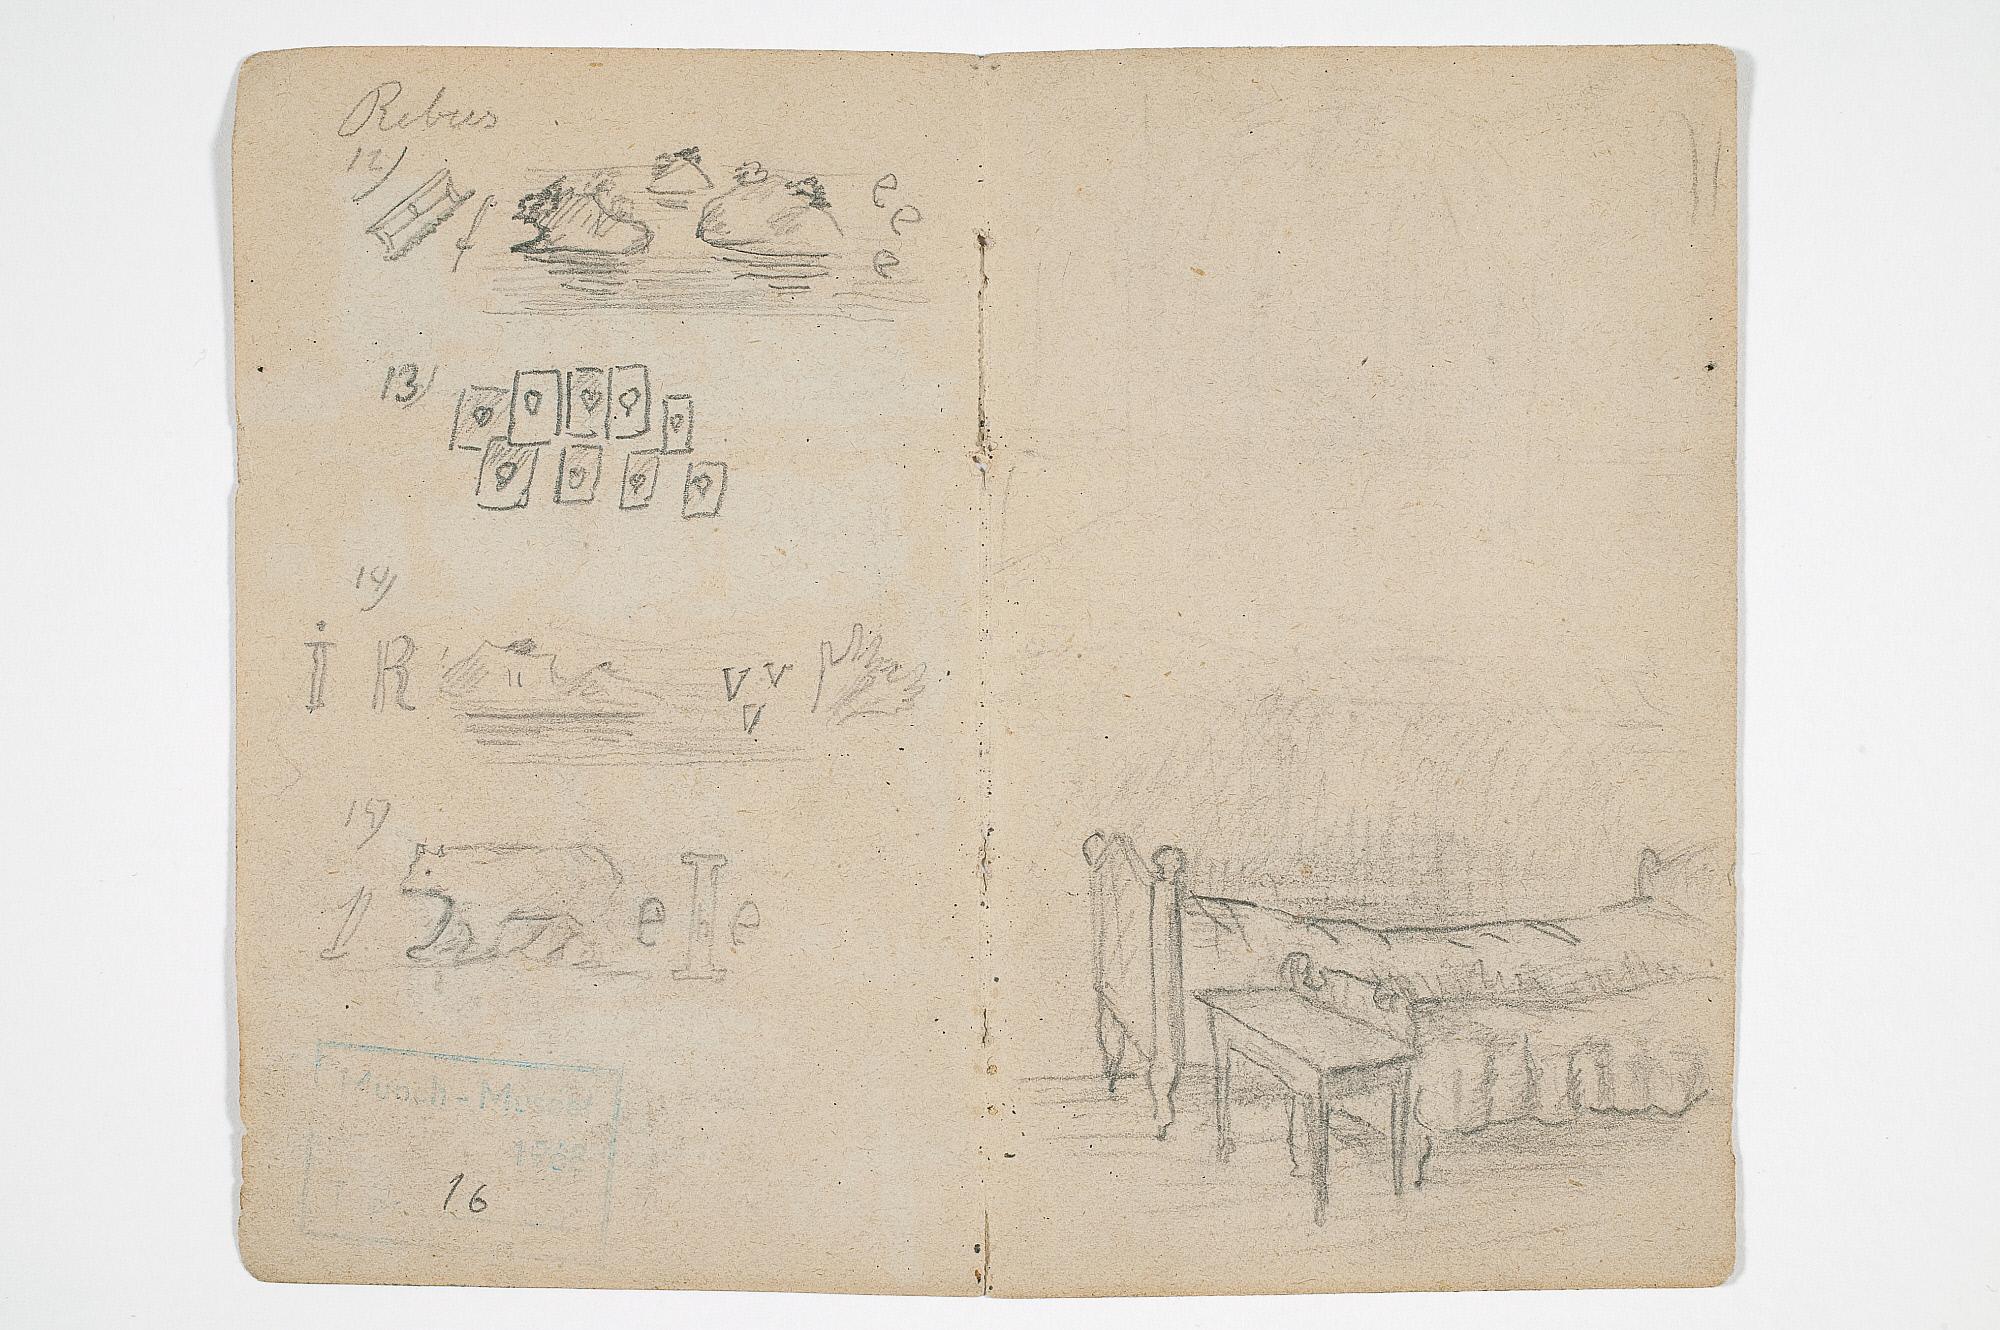 Rebus
12)
f
e
e
e
13)
14)
I R
v v
v
15)
1
e I e
Munch-Museet
16